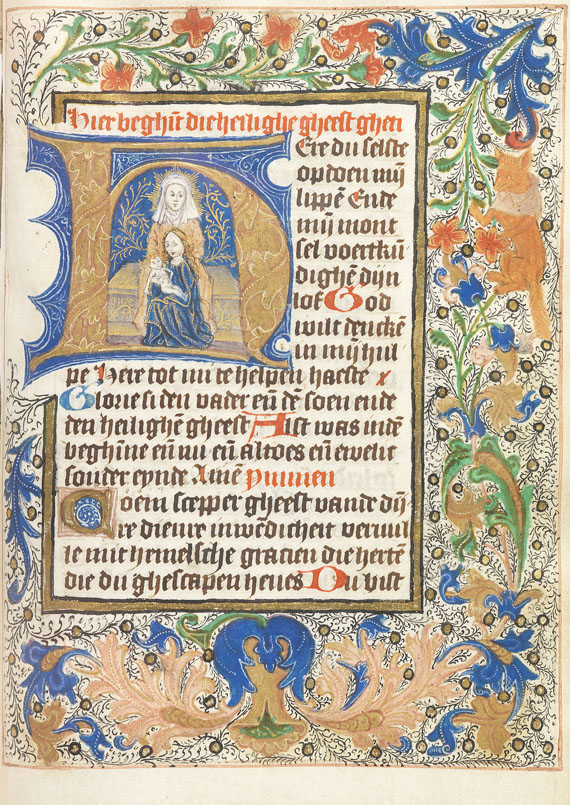 Hier beghīt die heilighe gheest ghetı
Here du selste
opdoen mij
lippē Ende
mij mont
sel voertkū
dighē dijn
lof God
wilt dencкē
in mij hul
pe Here tot mi te helpen haeste x
Glorie si den vader eñ dē soen ende
den heilighē gheest Alst was indē
beghīne eñ nu eñ altoes eñ ewelıt
sonder eynde Amē ymmen
Coem scepper gheest vande dij
re dienre inwēdicheit vervul
le mit hemelsche gracien die hertē
die du ghescapen heves Du bist